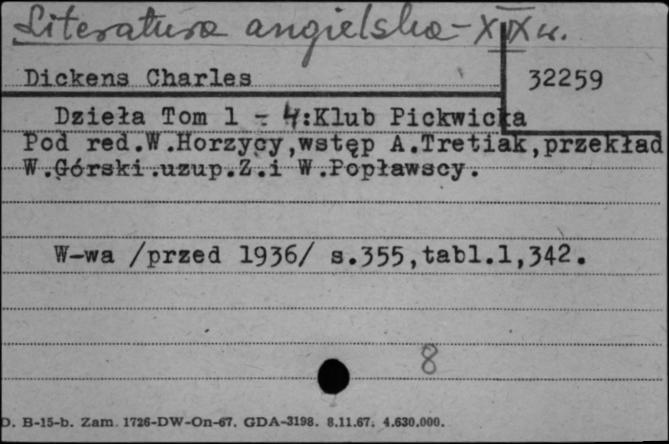 Literatura angielska - XIX w.
Dickens Charles
32259
Dzieła Tom 1 - 4:Klub Pickwicka
Pod red.W.Horzycy,wstęp A.Tretiak,przekład
W.Górski.uzup.Z.i W.Popławscy.
W-wa /przed 1936/ s.355,tabl.1,342.
8
D. B-15-b. Zam. 1726-DW-On-67. GDA-3198. 8.11.67. 4.630.000.